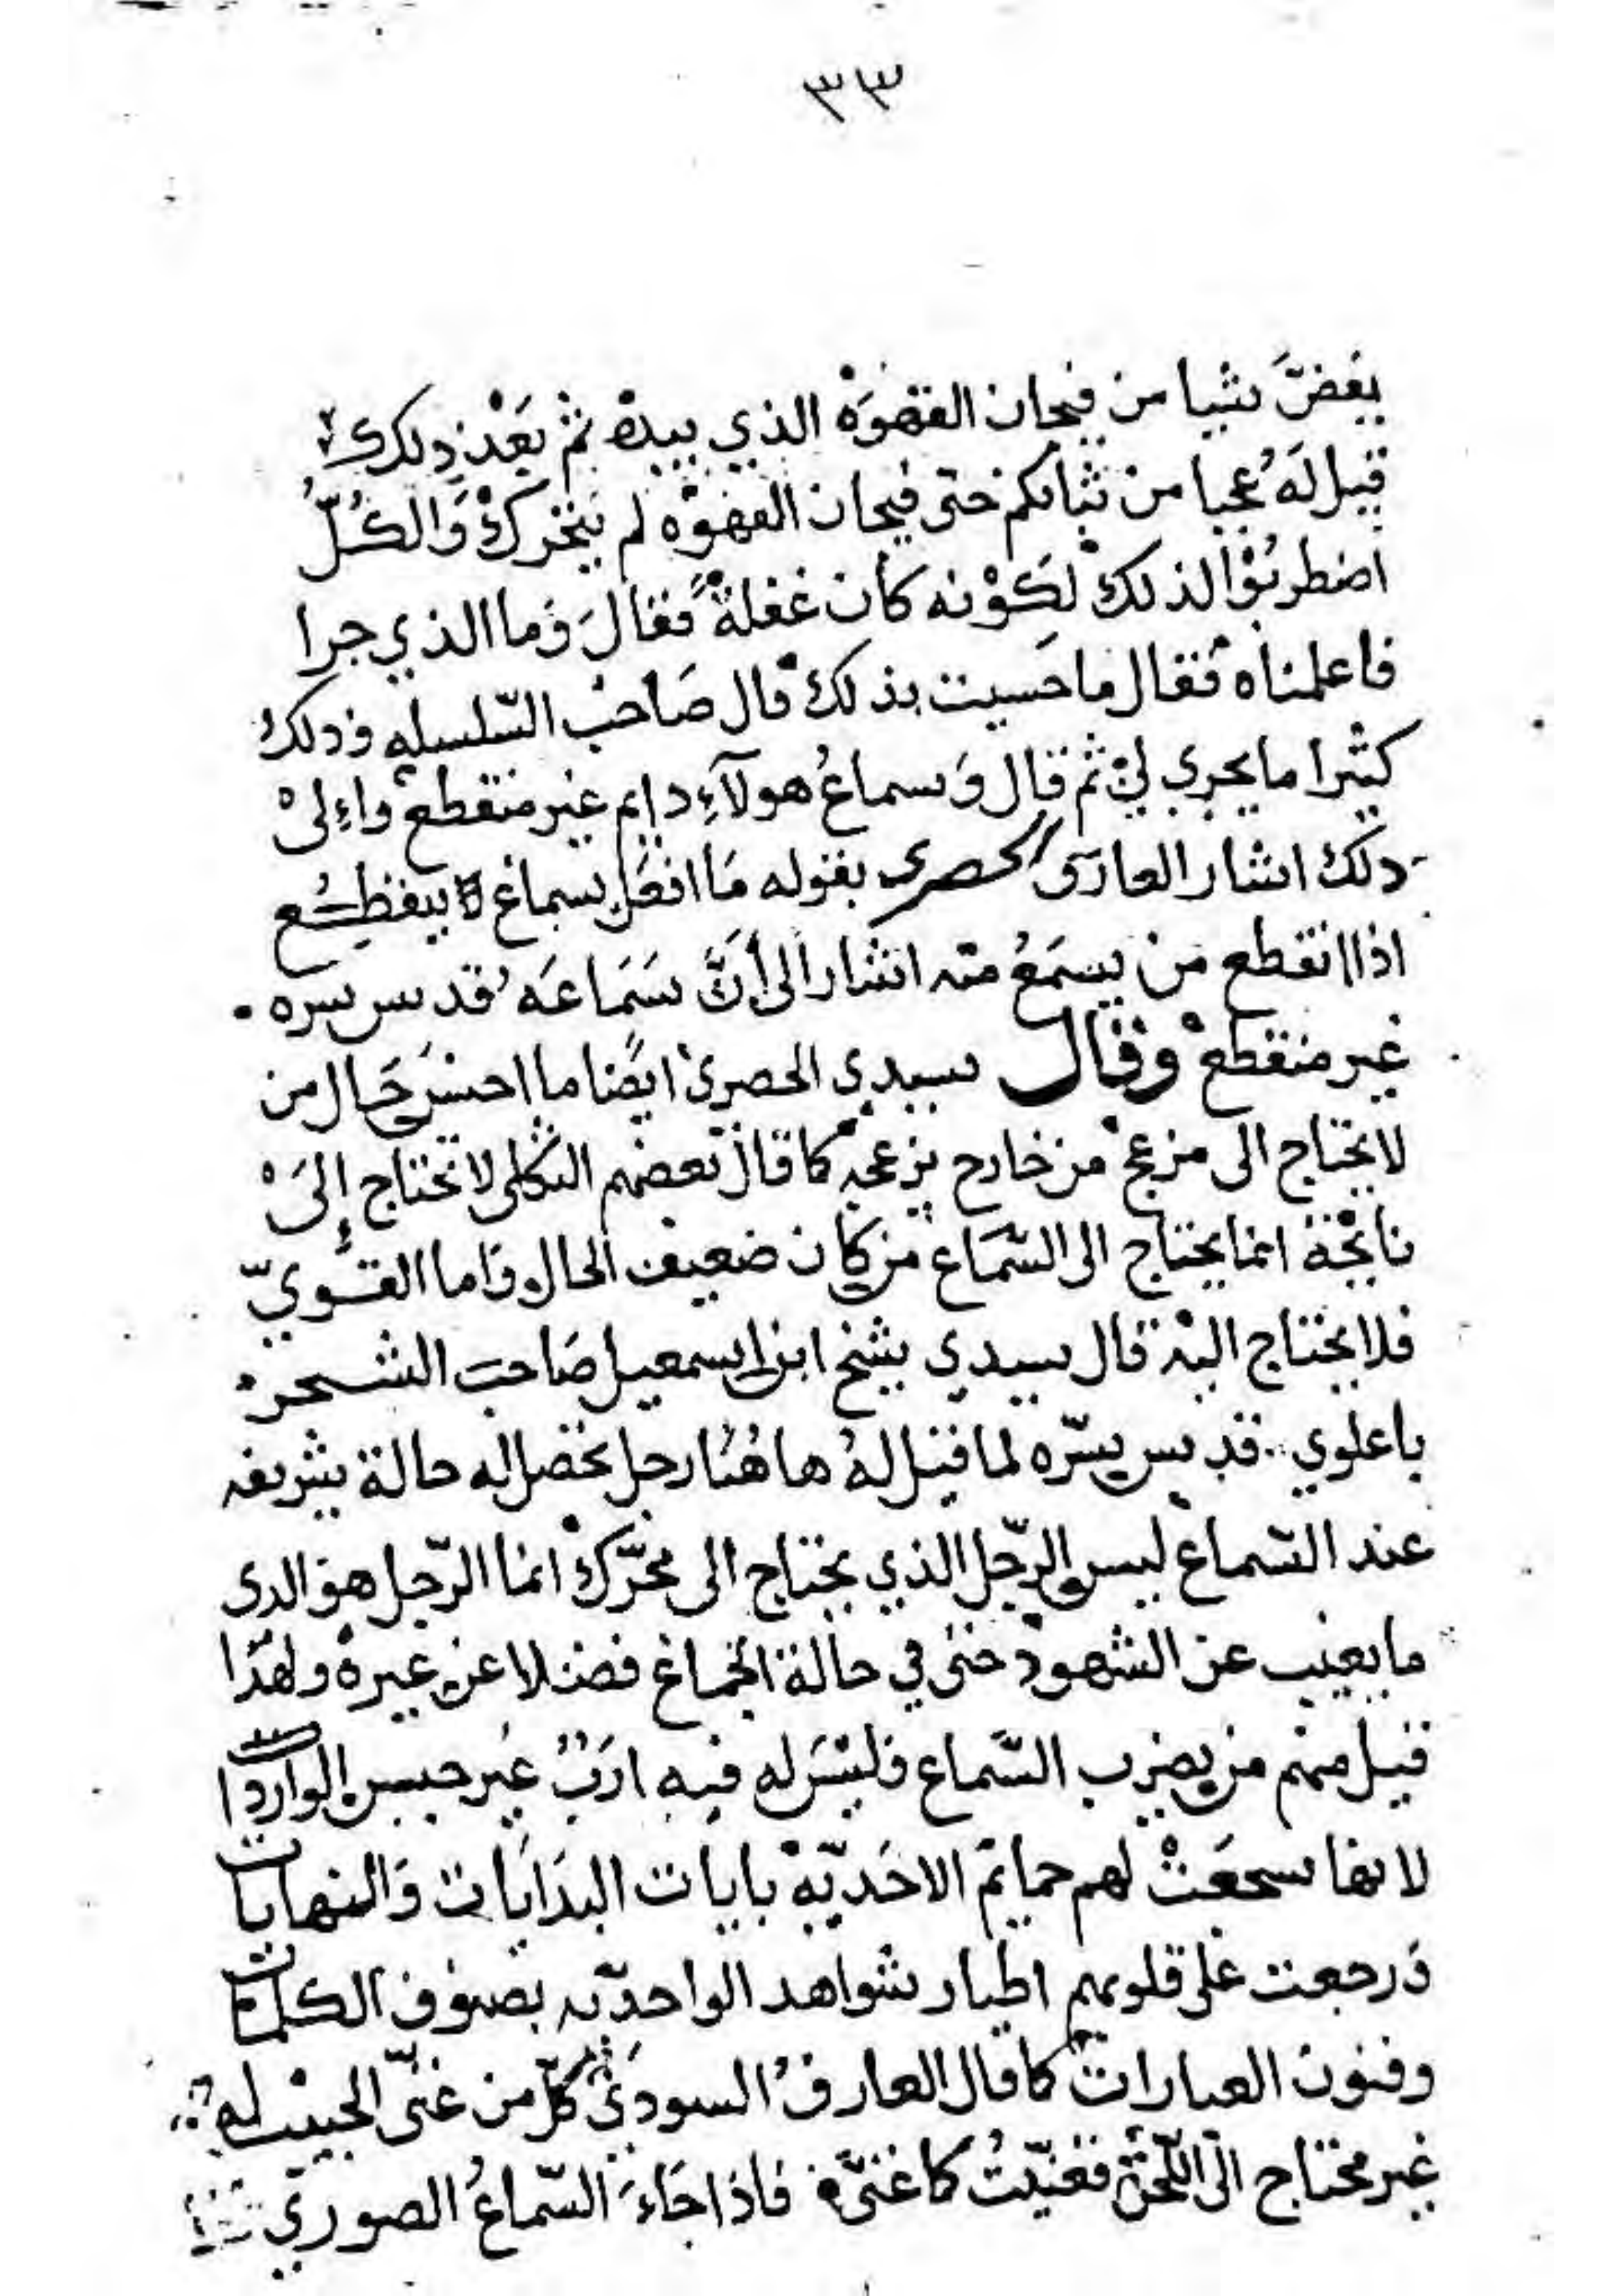 ٣٣
بغضّ شيا من فيجان القهوه الذي بيده ثم بعد ذلك
قيل له عجبا من ثباتكم حتى فيجان القهوه لم يتحرك والكلّ
اضطربوا لذلك لكونه كان غفلة فقال وما الذي جرا
فاعلمناه فقال ما حسيت بذلك قال صاحب السّلسله وذلك
كثيرا ما يجري لي ثم قال وسماع هولآء دايم غير منقطع واءلى
ذلك اشار العارف الحصرى بقوله ما افعل بسماع ينقطع
اذا انقطع من يسمع منه اشار الى أنّ سماعه قدس سره
غير منقطع وقال سيدي الحصري ايضا ما احسن حال من
لا يحتاج الى مزعج من خارج يزعجه كما قال بعضهم الثكلى لا تحتاج إلى
نايحة انما يحتاج الى السّماع من كان ضعيف الحال واما القويّ
فلا يحتاج اليه قال سيدي شيخ ابن اسمعيل صاحب الشحر
باعلوي قدس سرّه لما قيل له ها هنا رجل تحصل له حالة شريفه
عند السّماع ليس الرّجل الذي يحتاج الى محرّك انما الرّجل هو الذى
ما يغيب عن الشهود حتى في حالة الجماع فضلا عن غيره ولهذا
قيل منهم من يضرب السّماع فليس له فيه ارب غير حبيس الواردات
لانها سجعت لهم حمايم الاحديّه بايات البدايات والنهايات
ورجعت على قلوبهم اطيار شواهد الواحديّه بصنوف الكلمات
وفنون العبارات كما قال العارف السودي كلّ من غنّى الحبيب له
غير محتاج الى اللّحن فغنيّت كما غنّى فاذا جاء السّماع الصوري